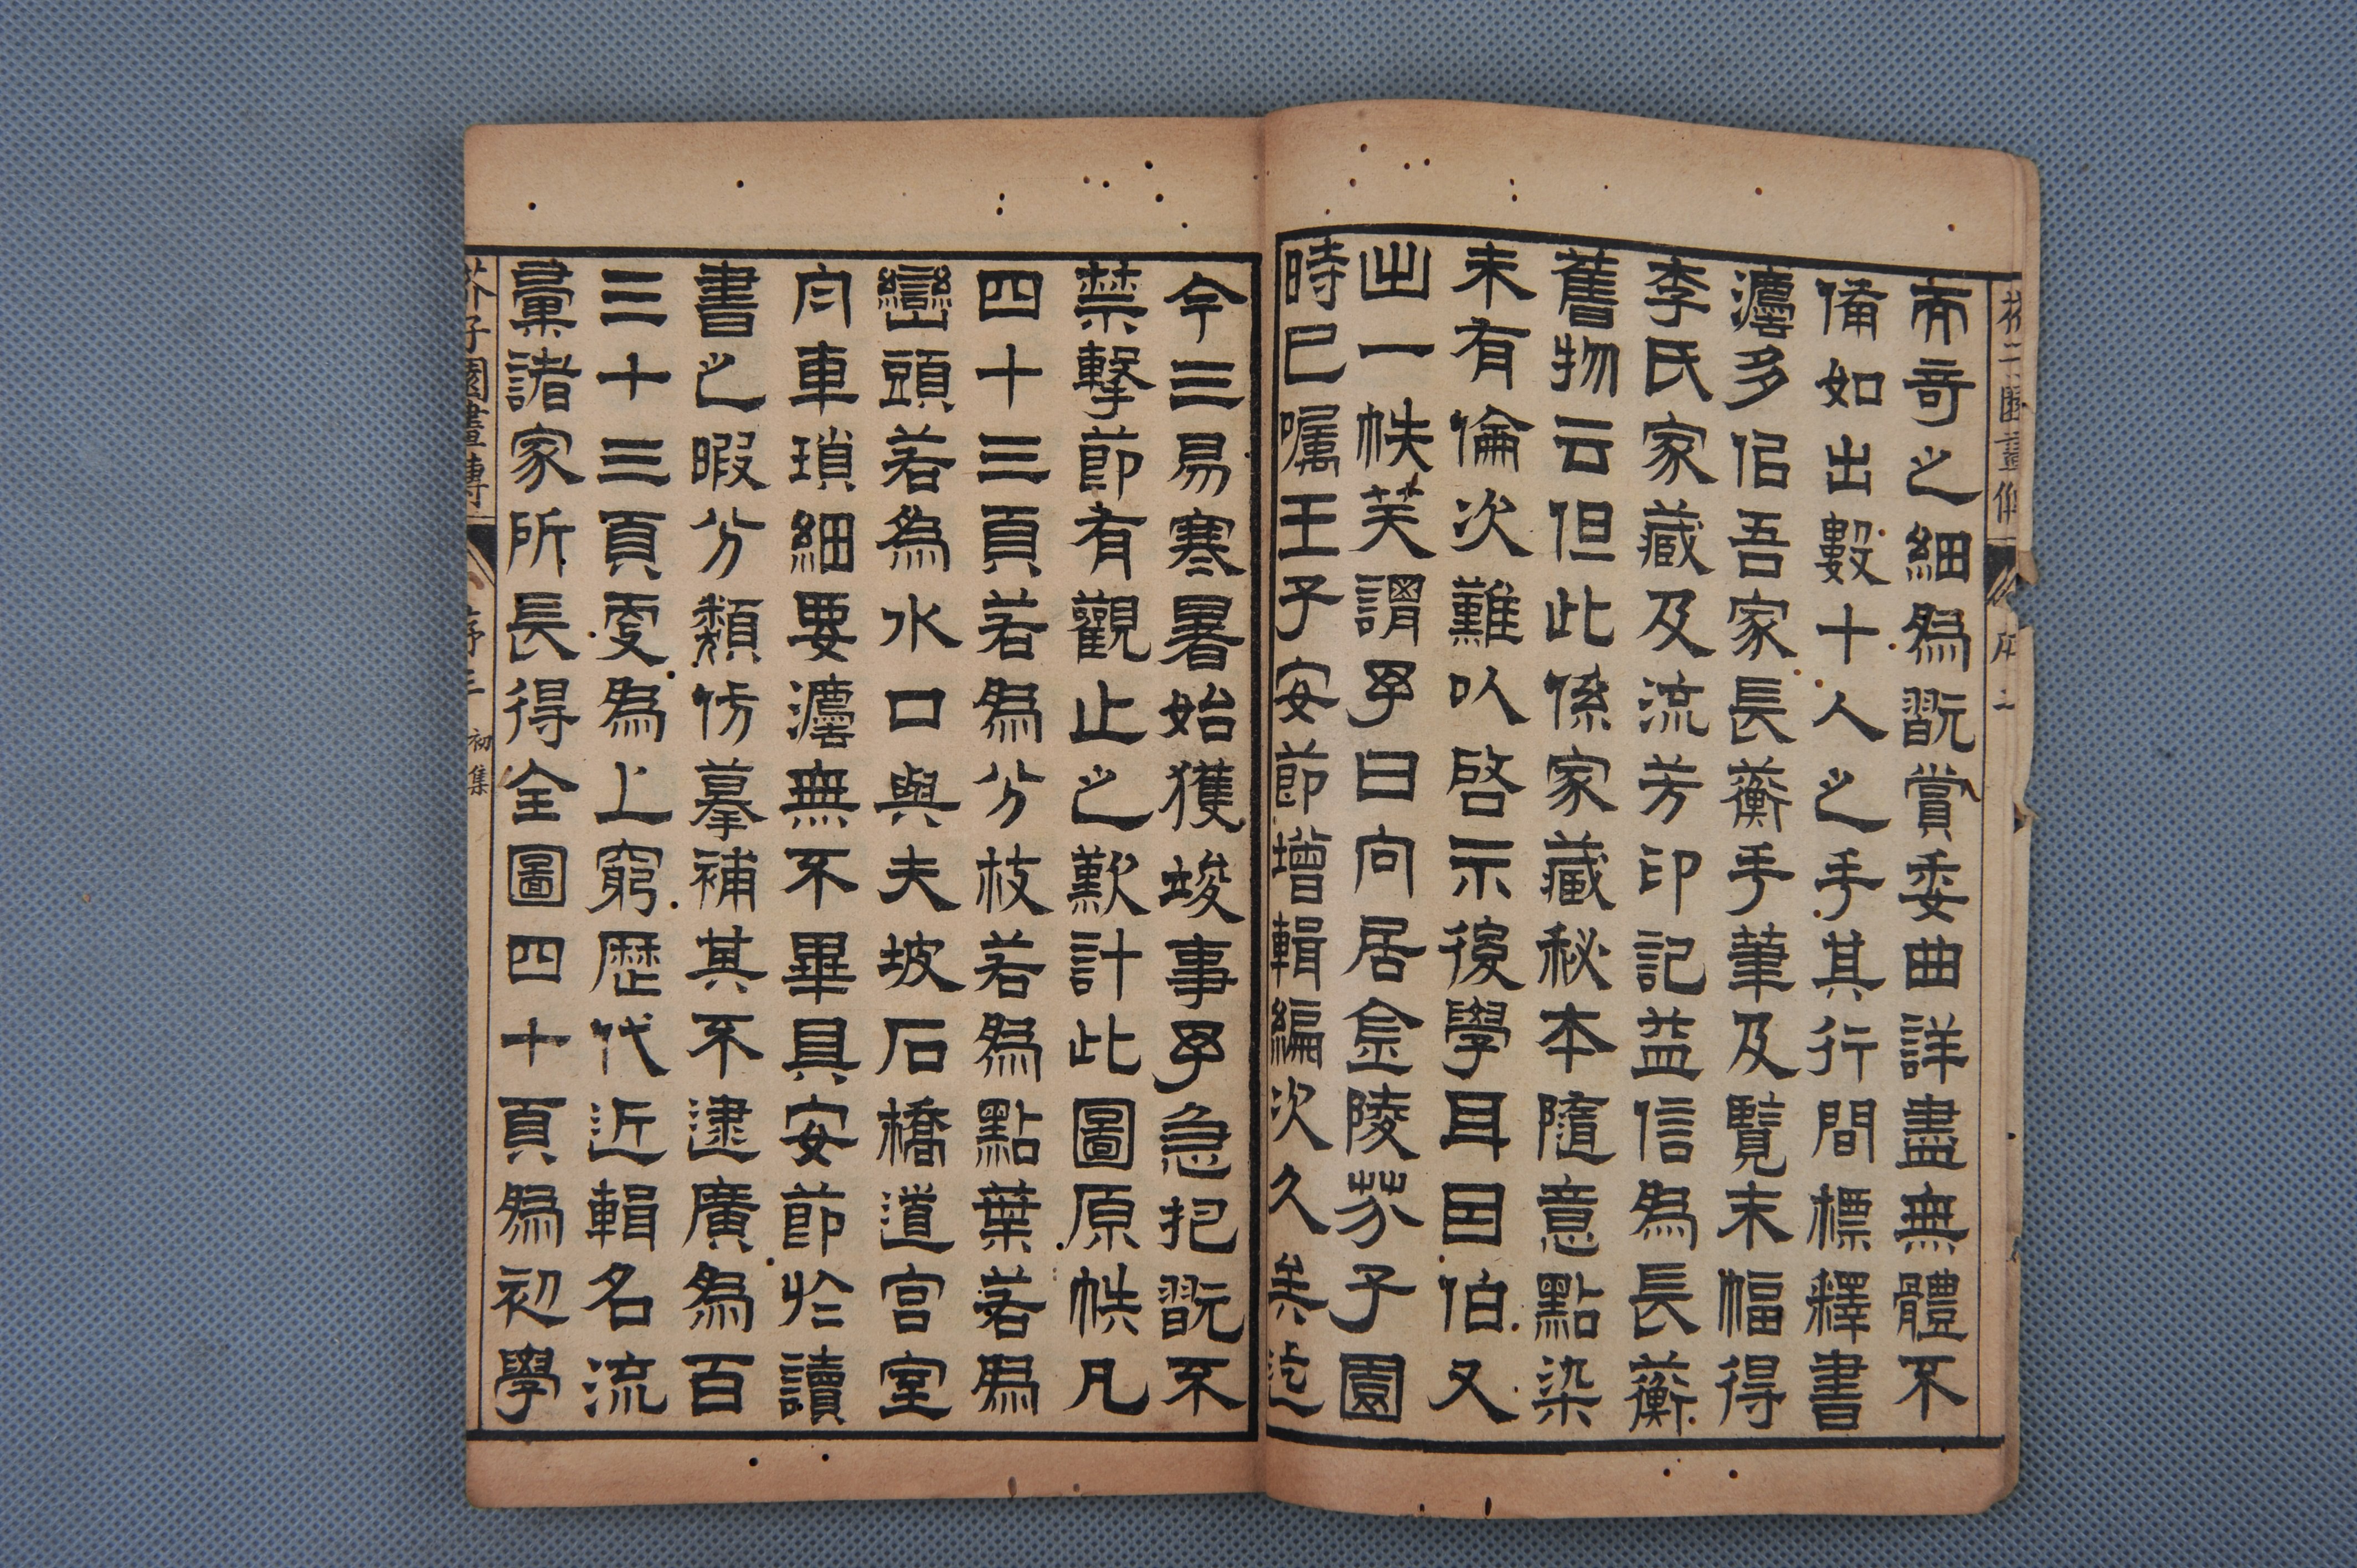 芥子園畫傳 序 二
而奇之細爲翫賞委曲詳盡無體不
備如出數十人之手其行間標釋書
灋多侣吾家長蘅手筆及覽末幅得
李氏家藏及流芳印記益信爲長蘅
舊物云但此係家藏秘本隨意點染
未有倫次難以啓示後學耳因伯又
出一帙笑謂予曰向居金陵芥子園
時已囑王子安節增輯編次久矣迄
今三易寒暑始獲竣事予急把翫不
禁擊節有觀止之歎計此圖原帙凡
四十三頁若爲分枝若爲點葉若爲
巒頭若爲水口與夫坡石橋道宮室
舟車瑣細要灋無不畢具安節於讀
書之暇分類仿摹補其不逮廣爲百
三十三頁更爲上窮歷代近輯名流
彙諸家所長得全圖四十頁爲初學
芥子園畫傳 序 三 初集